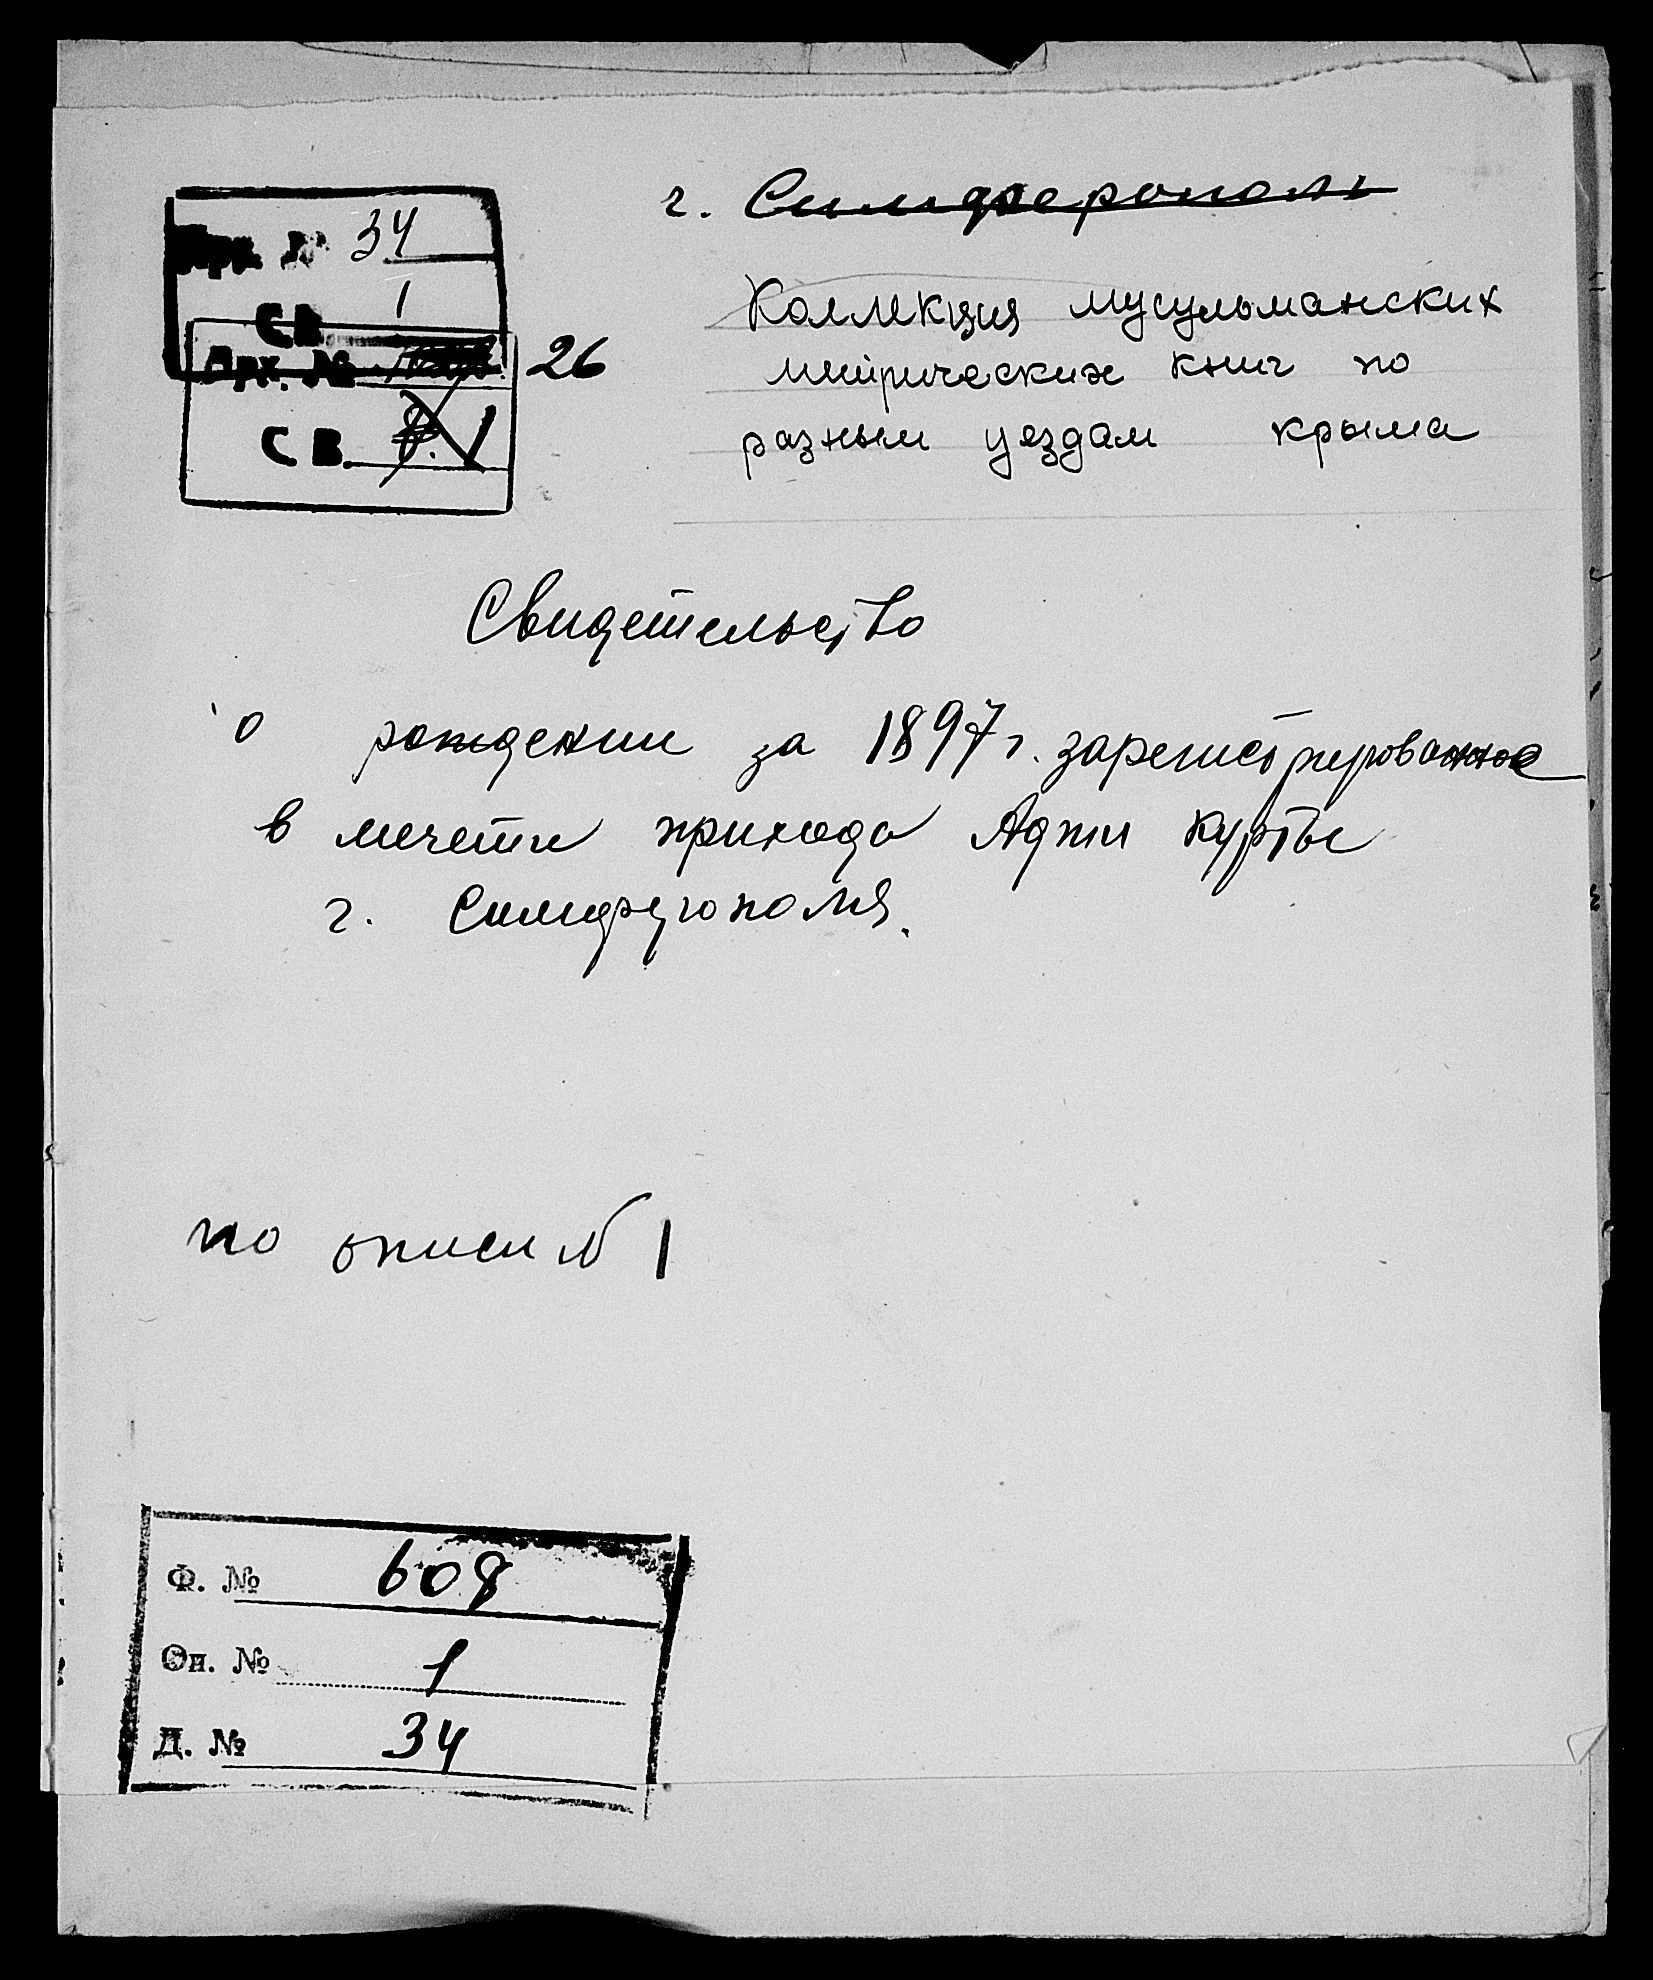 г. Симферополь
Арх. № 34
СВ. 1
Арх. № 26
СВ. 1
Коллекция мусульманских
метрических книг по
разным уездам крыма
Свидетельство
о рождении за 1897 г. зарегистрированное
в мечети прихода Аджи Курты
г. Симферополя.
по описи № 1
Ф. № 608
Оп. № 1
Д. № 34